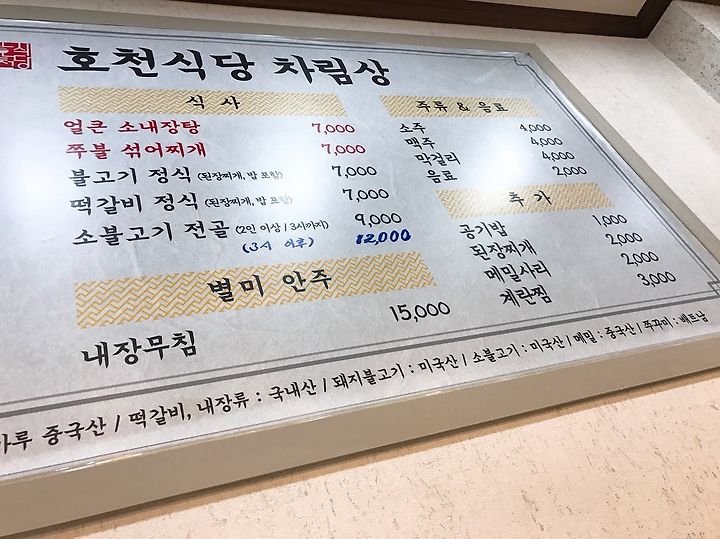 호천식당 차림상
식 사
얼큰 소내장탕 7,000
쭈불 섞어찌개 7,000
불고기 정식 (된장찌개, 밥 포함) 7,000
떡갈비 정식 (된장찌개, 밥 포함) 7,000
소불고기 전골 (2인 이상 / 3시까지) 9,000
(3시 이후) 12,000
별미 안주
내장무침 15,000
주류 & 음료
소주 4,000
맥주 4,000
막걸리 4,000
음료 2,000
추 가
공기밥 1,000
된장찌개 2,000
메밀사리 2,000
계란찜 3,000
중국산 / 떡갈비, 내장류 : 국내산 / 돼지불고기 : 미국산 / 소불고기 : 미국산 / 메밀 : 중국산 / 쭈꾸미 : 베트남